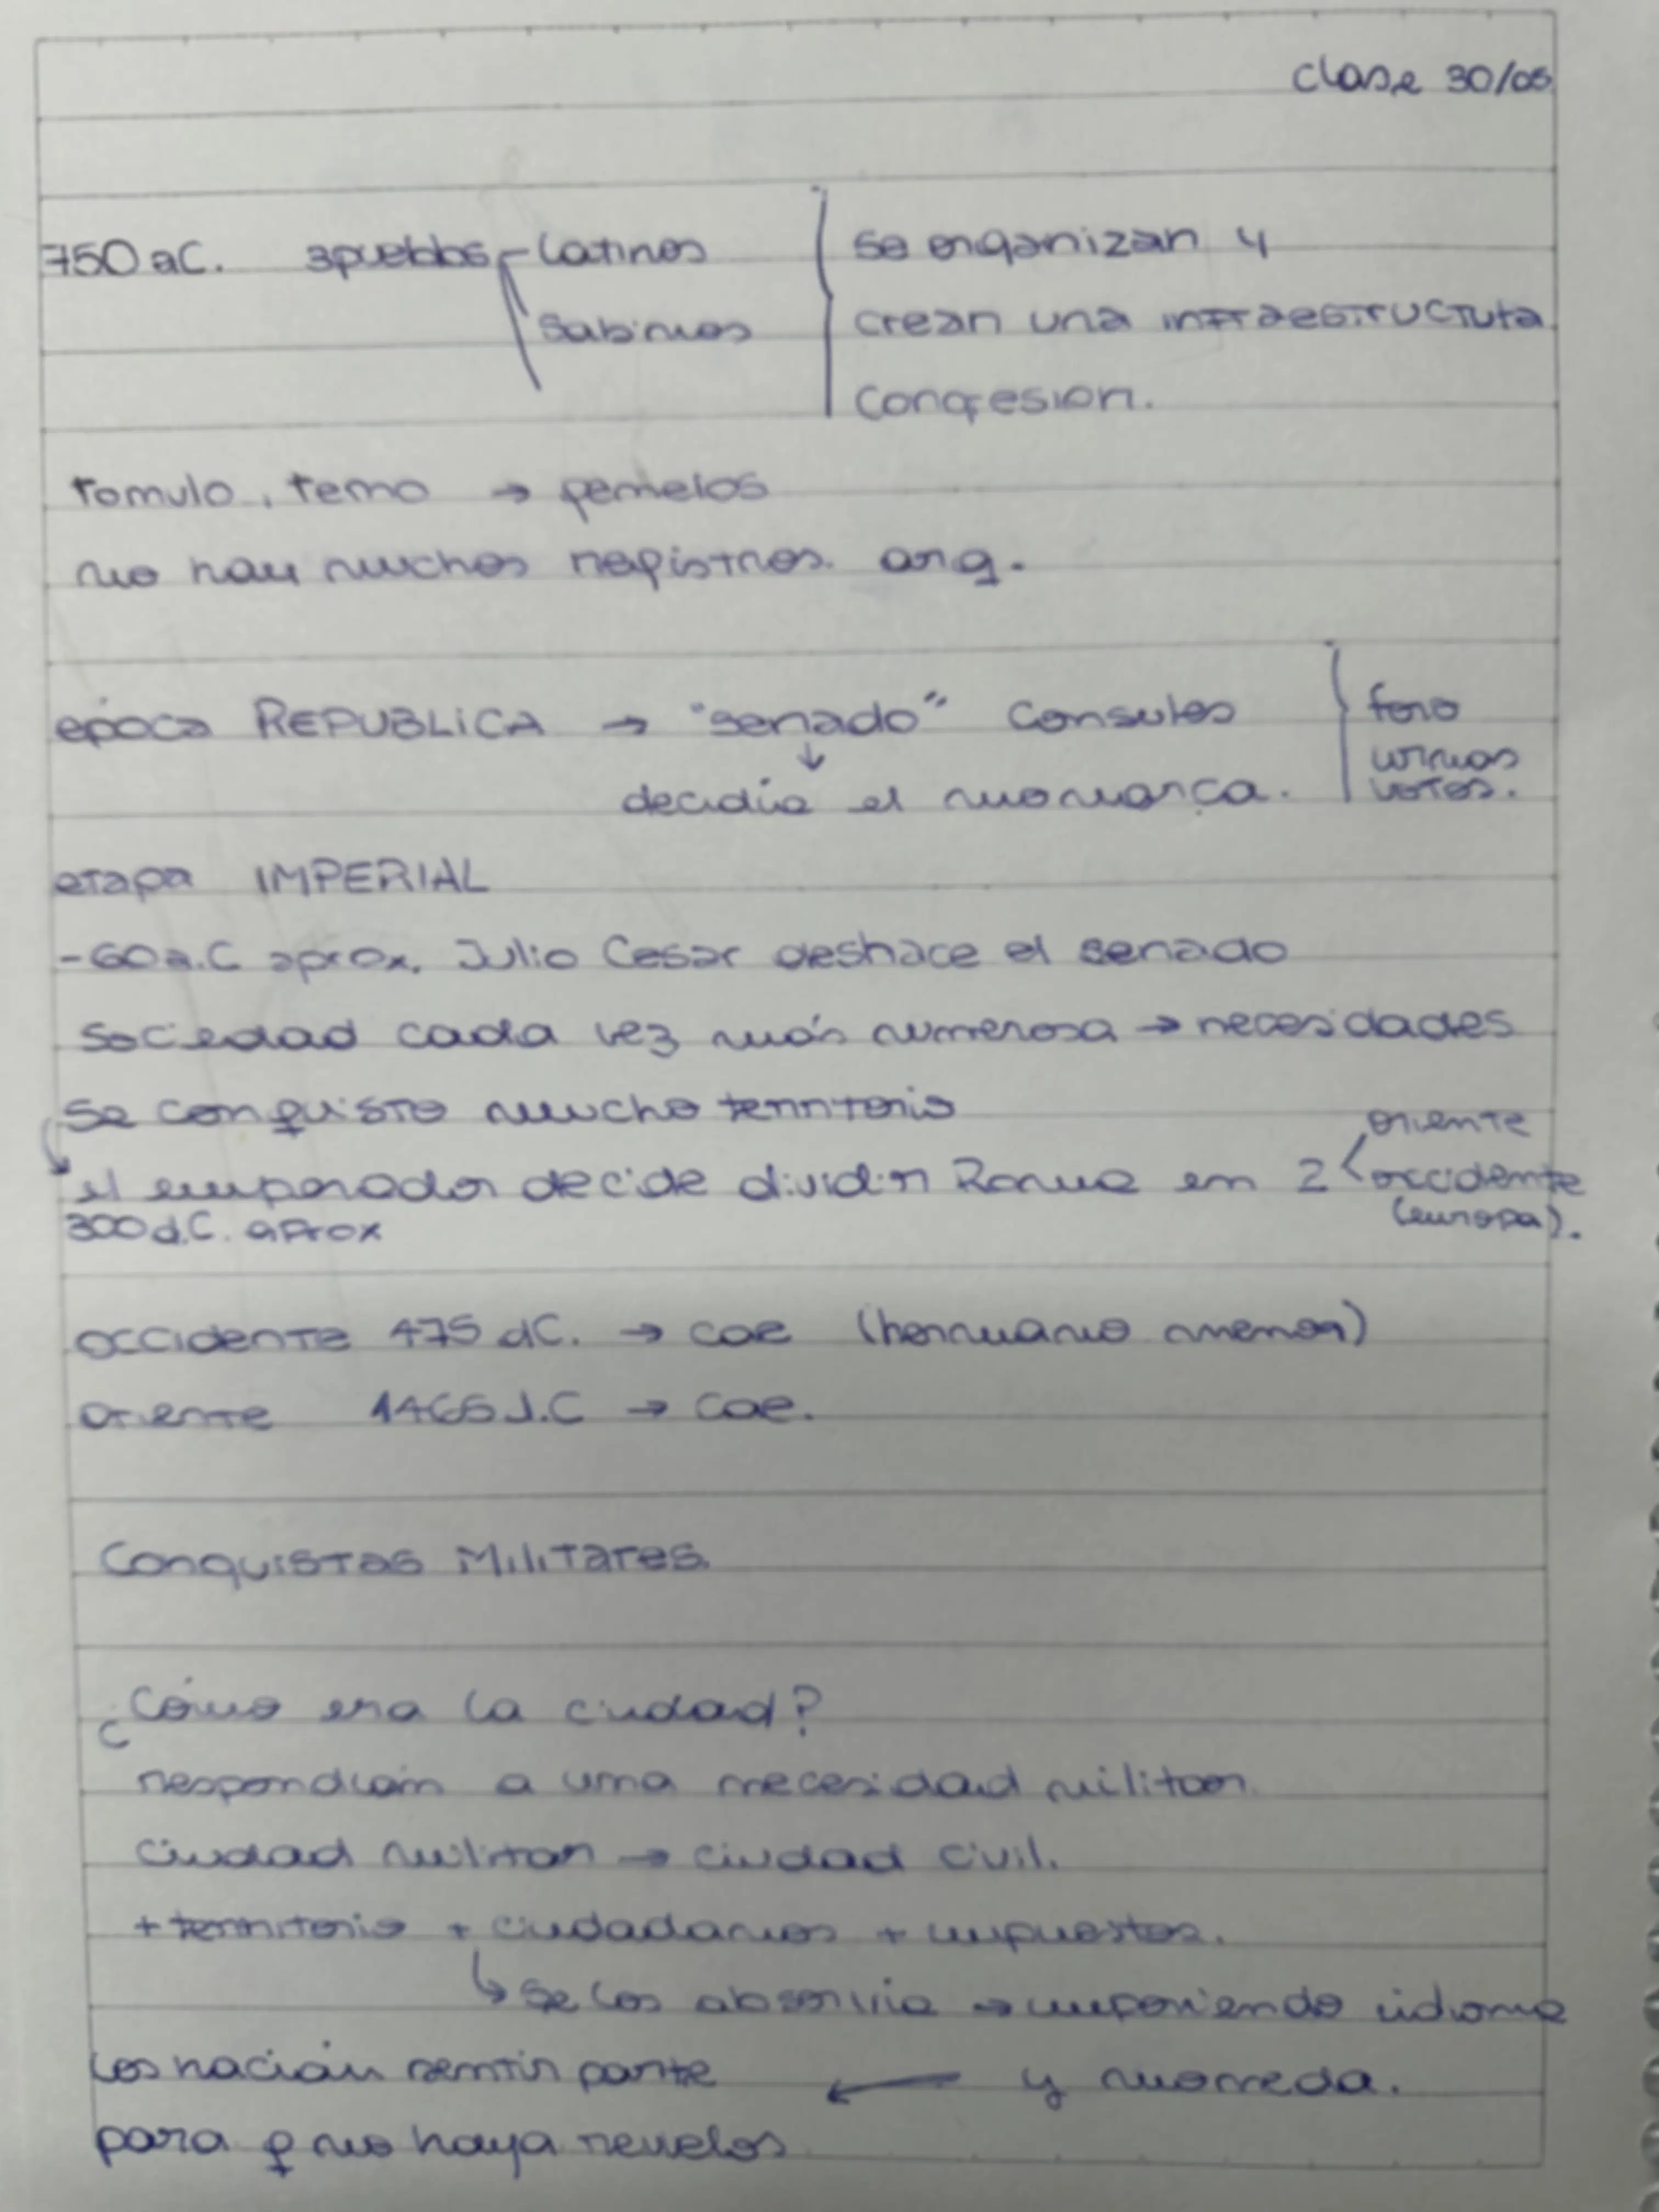 Clase 30/05
750 aC. 3 pueblos - Latinos
Sabinos
se organizan y
crean una infraestructura
congresion.
romulo, remo → gemelos
no hay muchos registros. arq.
época REPUBLICA → "senado" Consules
↓
decidía el monarca.
foro
urnas
votos.
etapa IMPERIAL
- 60 a.C aprox. Julio Cesar deshace el senado
sociedad cada vez más numerosa → necesidades
se conquisto mucho territorio
el emperador decide dividir Roma en 2
oriente
occidente
(europa).
300 d.C. aprox
occidente 475 dC. → cae (hermano menor)
oriente 1465 d.C → cae.
Conquistas Militares.
¿Cómo era la ciudad?
respondían a una necesidad militar.
ciudad militar → ciudad civil.
+ territorio + ciudadanos + impuestos.
↳ se los absorvia → imponiendo idioma
y moneda.
←
los hacían sentir parte
para q no haya revelos